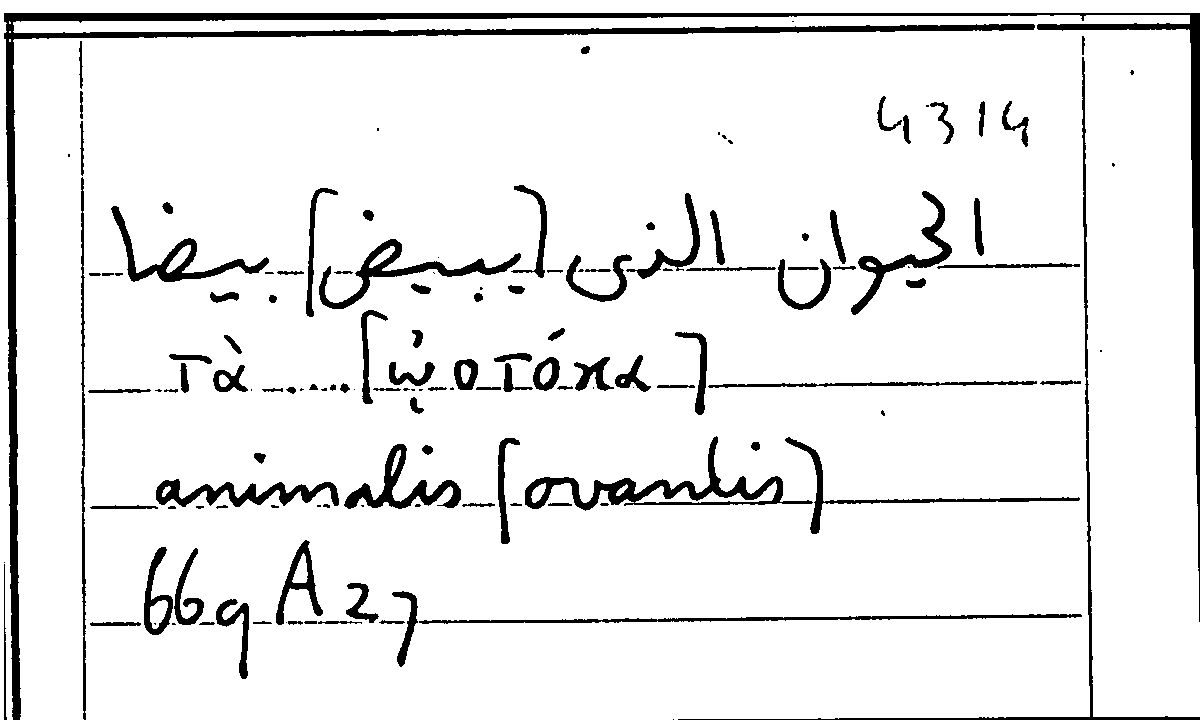 4314
الحيوان الذى [يبيض] بيضا
τὰ .... [ᾠοτόκα]
animalis [ovantis]
669 A 27